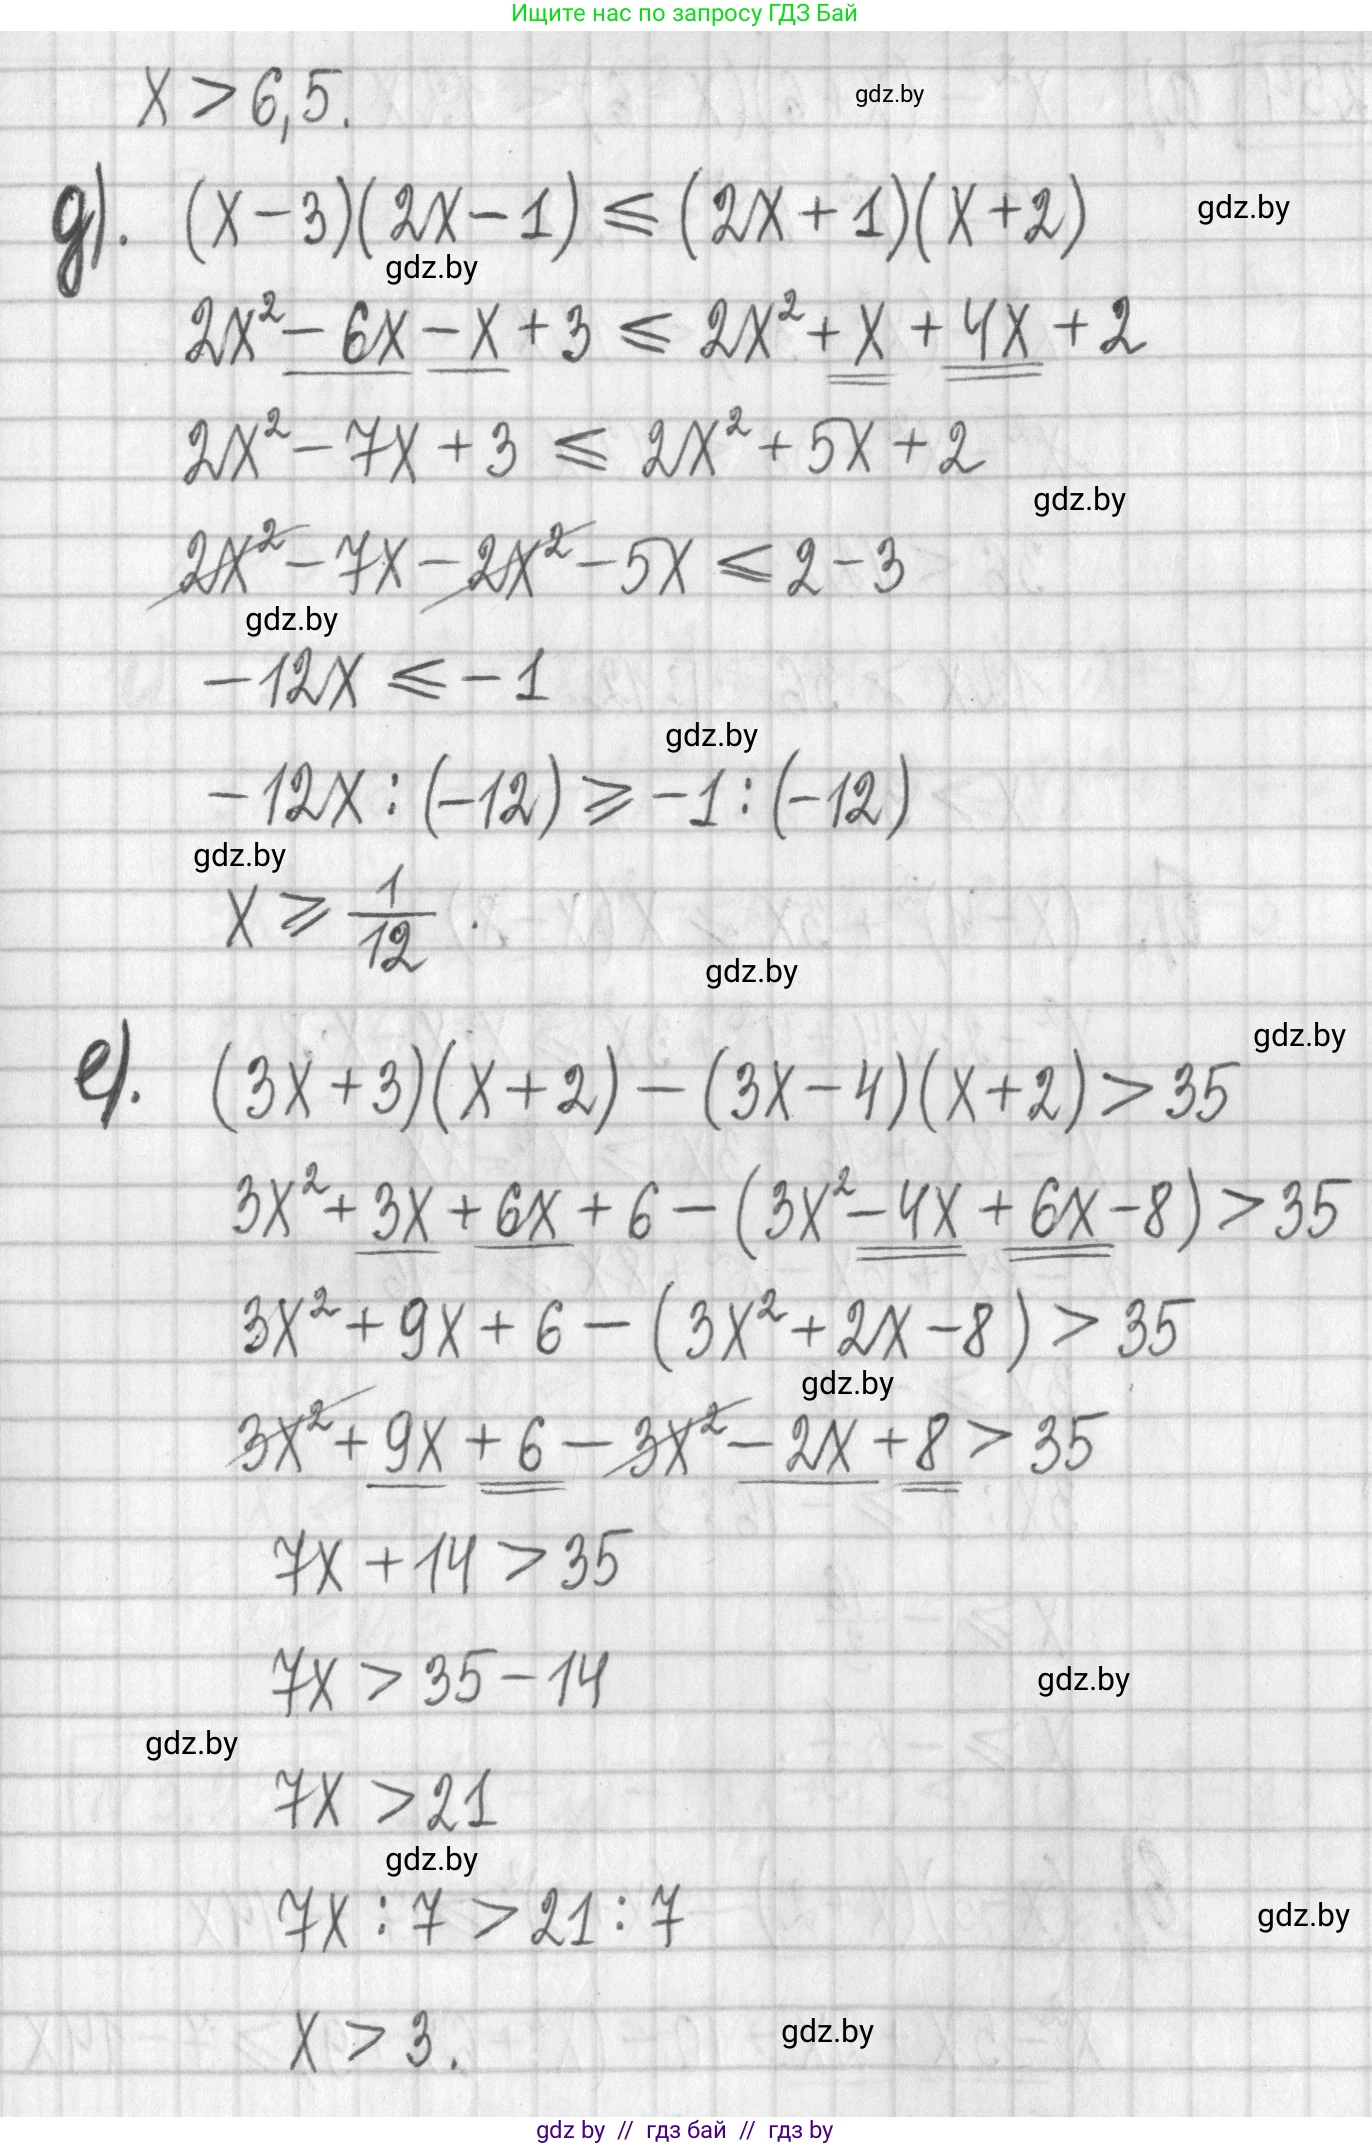 Ищите нас по запросу ГДЗ Бай
x > 6,5.
gdz.by
д). (x − 3)(2x − 1) ⩽ (2x + 1)(x + 2)
gdz.by
gdz.by
2x² − 6x − x + 3 ⩽ 2x² + x + 4x + 2
2x² − 7x + 3 ⩽ 2x² + 5x + 2
gdz.by
2x² − 7x − 2x² − 5x ⩽ 2 − 3
gdz.by
−12x ⩽ −1
gdz.by
−12x : (−12) ⩾ −1 : (−12)
gdz.by
x ⩾ 1/12.
gdz.by
gdz.by
е). (3x + 3)(x + 2) − (3x − 4)(x + 2) > 35
3x² + 3x + 6x + 6 − (3x² − 4x + 6x − 8) > 35
3x² + 9x + 6 − (3x² + 2x − 8) > 35
gdz.by
3x² + 9x + 6 − 3x² − 2x + 8 > 35
7x + 14 > 35
7x > 35 − 14
gdz.by
gdz.by
7x > 21
gdz.by
7x : 7 > 21 : 7
gdz.by
x > 3.
gdz.by
gdz by // гдз бай // гдз by